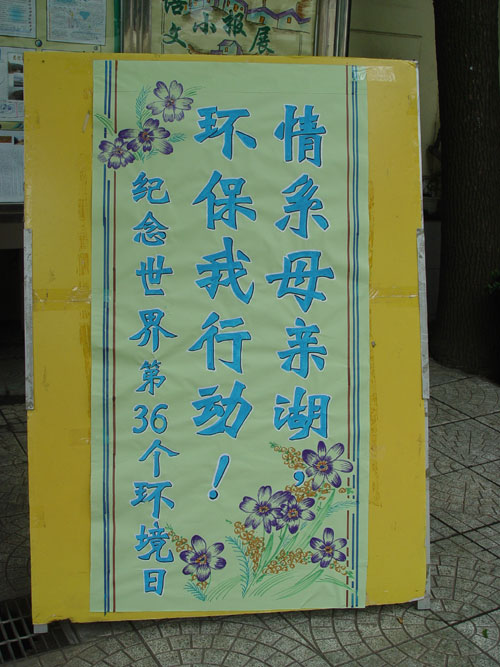 小报展
情系母亲湖，
环保我行动！
纪念世界第36个环境日